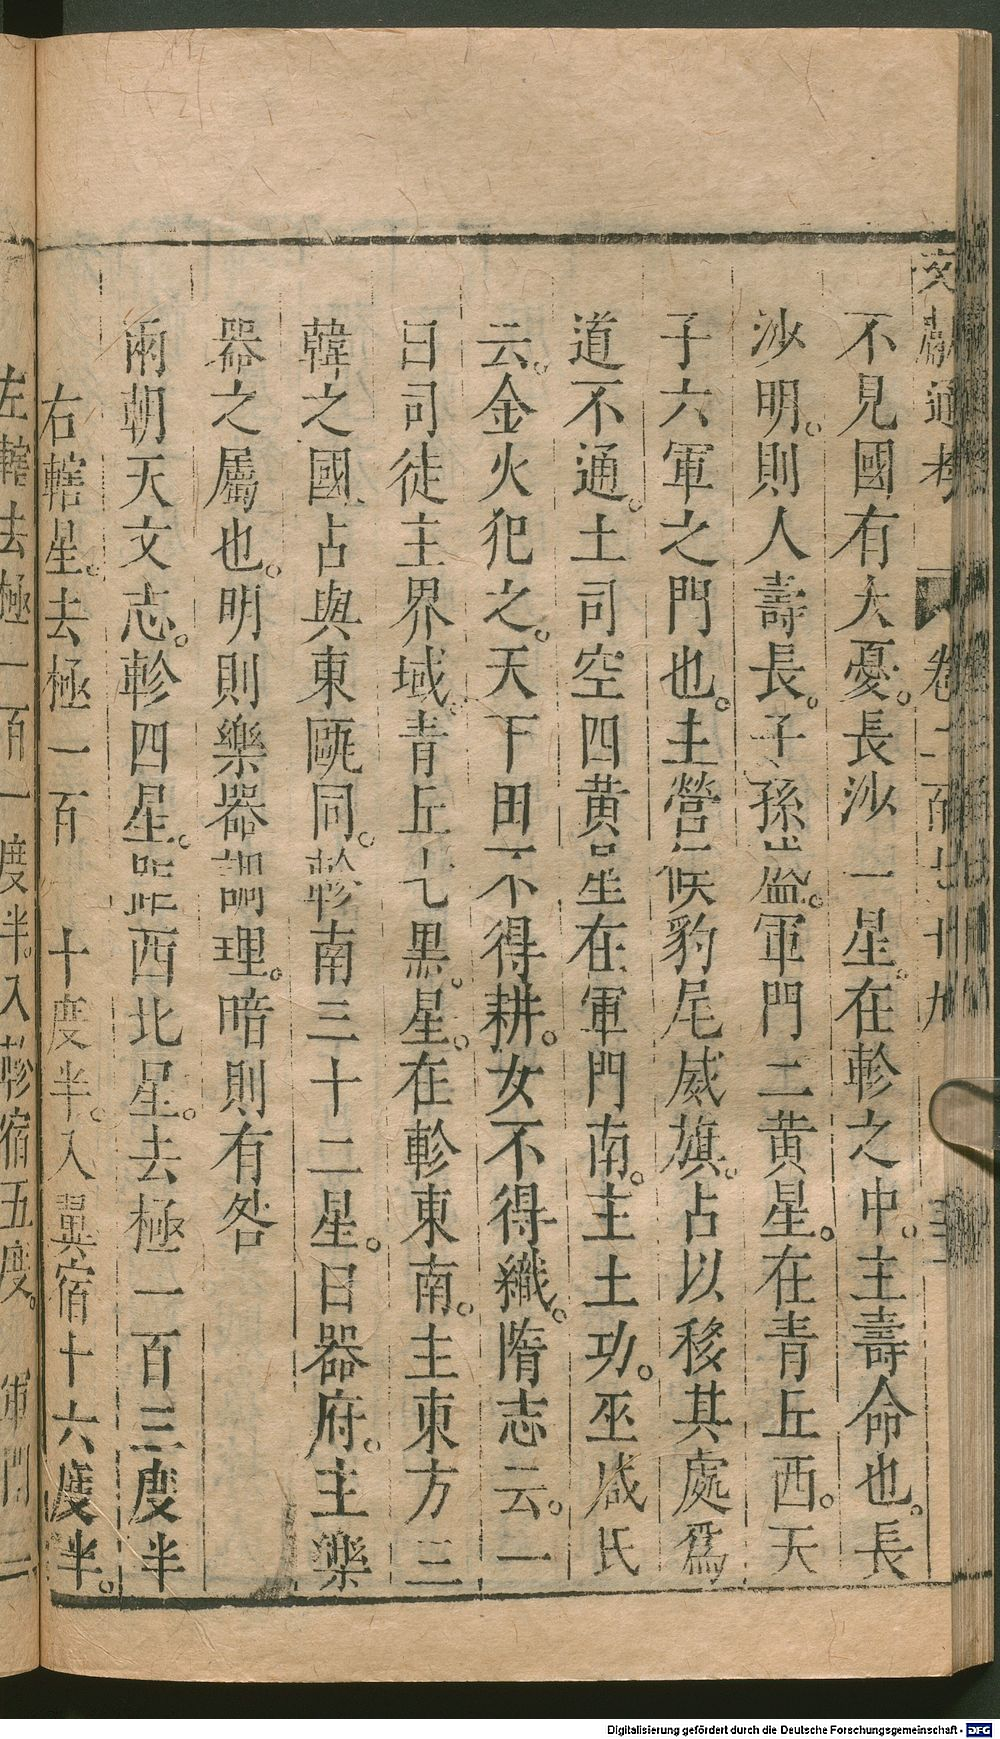 文獻通考 卷二百七十九
不見國有大憂。長沙一星。在軫之中。主壽命也。長
沙明。則人壽長。子孫益。軍門二黃星。在青丘西。天
子六軍之門也。主營候豹尾威旗。占以移其處爲
道不通。土司空四黃星在軍門南。主土功。巫咸氏
云。金火犯之。天下田不得耕。女不得織。隋志云。一
曰司徒主界域。青丘七黑。星。在軫東南。主東方三
韓之國占與東甌同。軫南三十二星。曰器府。主樂
器之屬也。明則樂器調理。暗則有咎
兩朝天文志。軫四星。距西北星。去極一百三度半
右轄星。去極一百 十度半。入翼宿十六度半。
左轄去極一百一度半。入軫宿五度。 軍門二
Digitalisierung gefördert durch die Deutsche Forschungsgemeinschaft - DFG